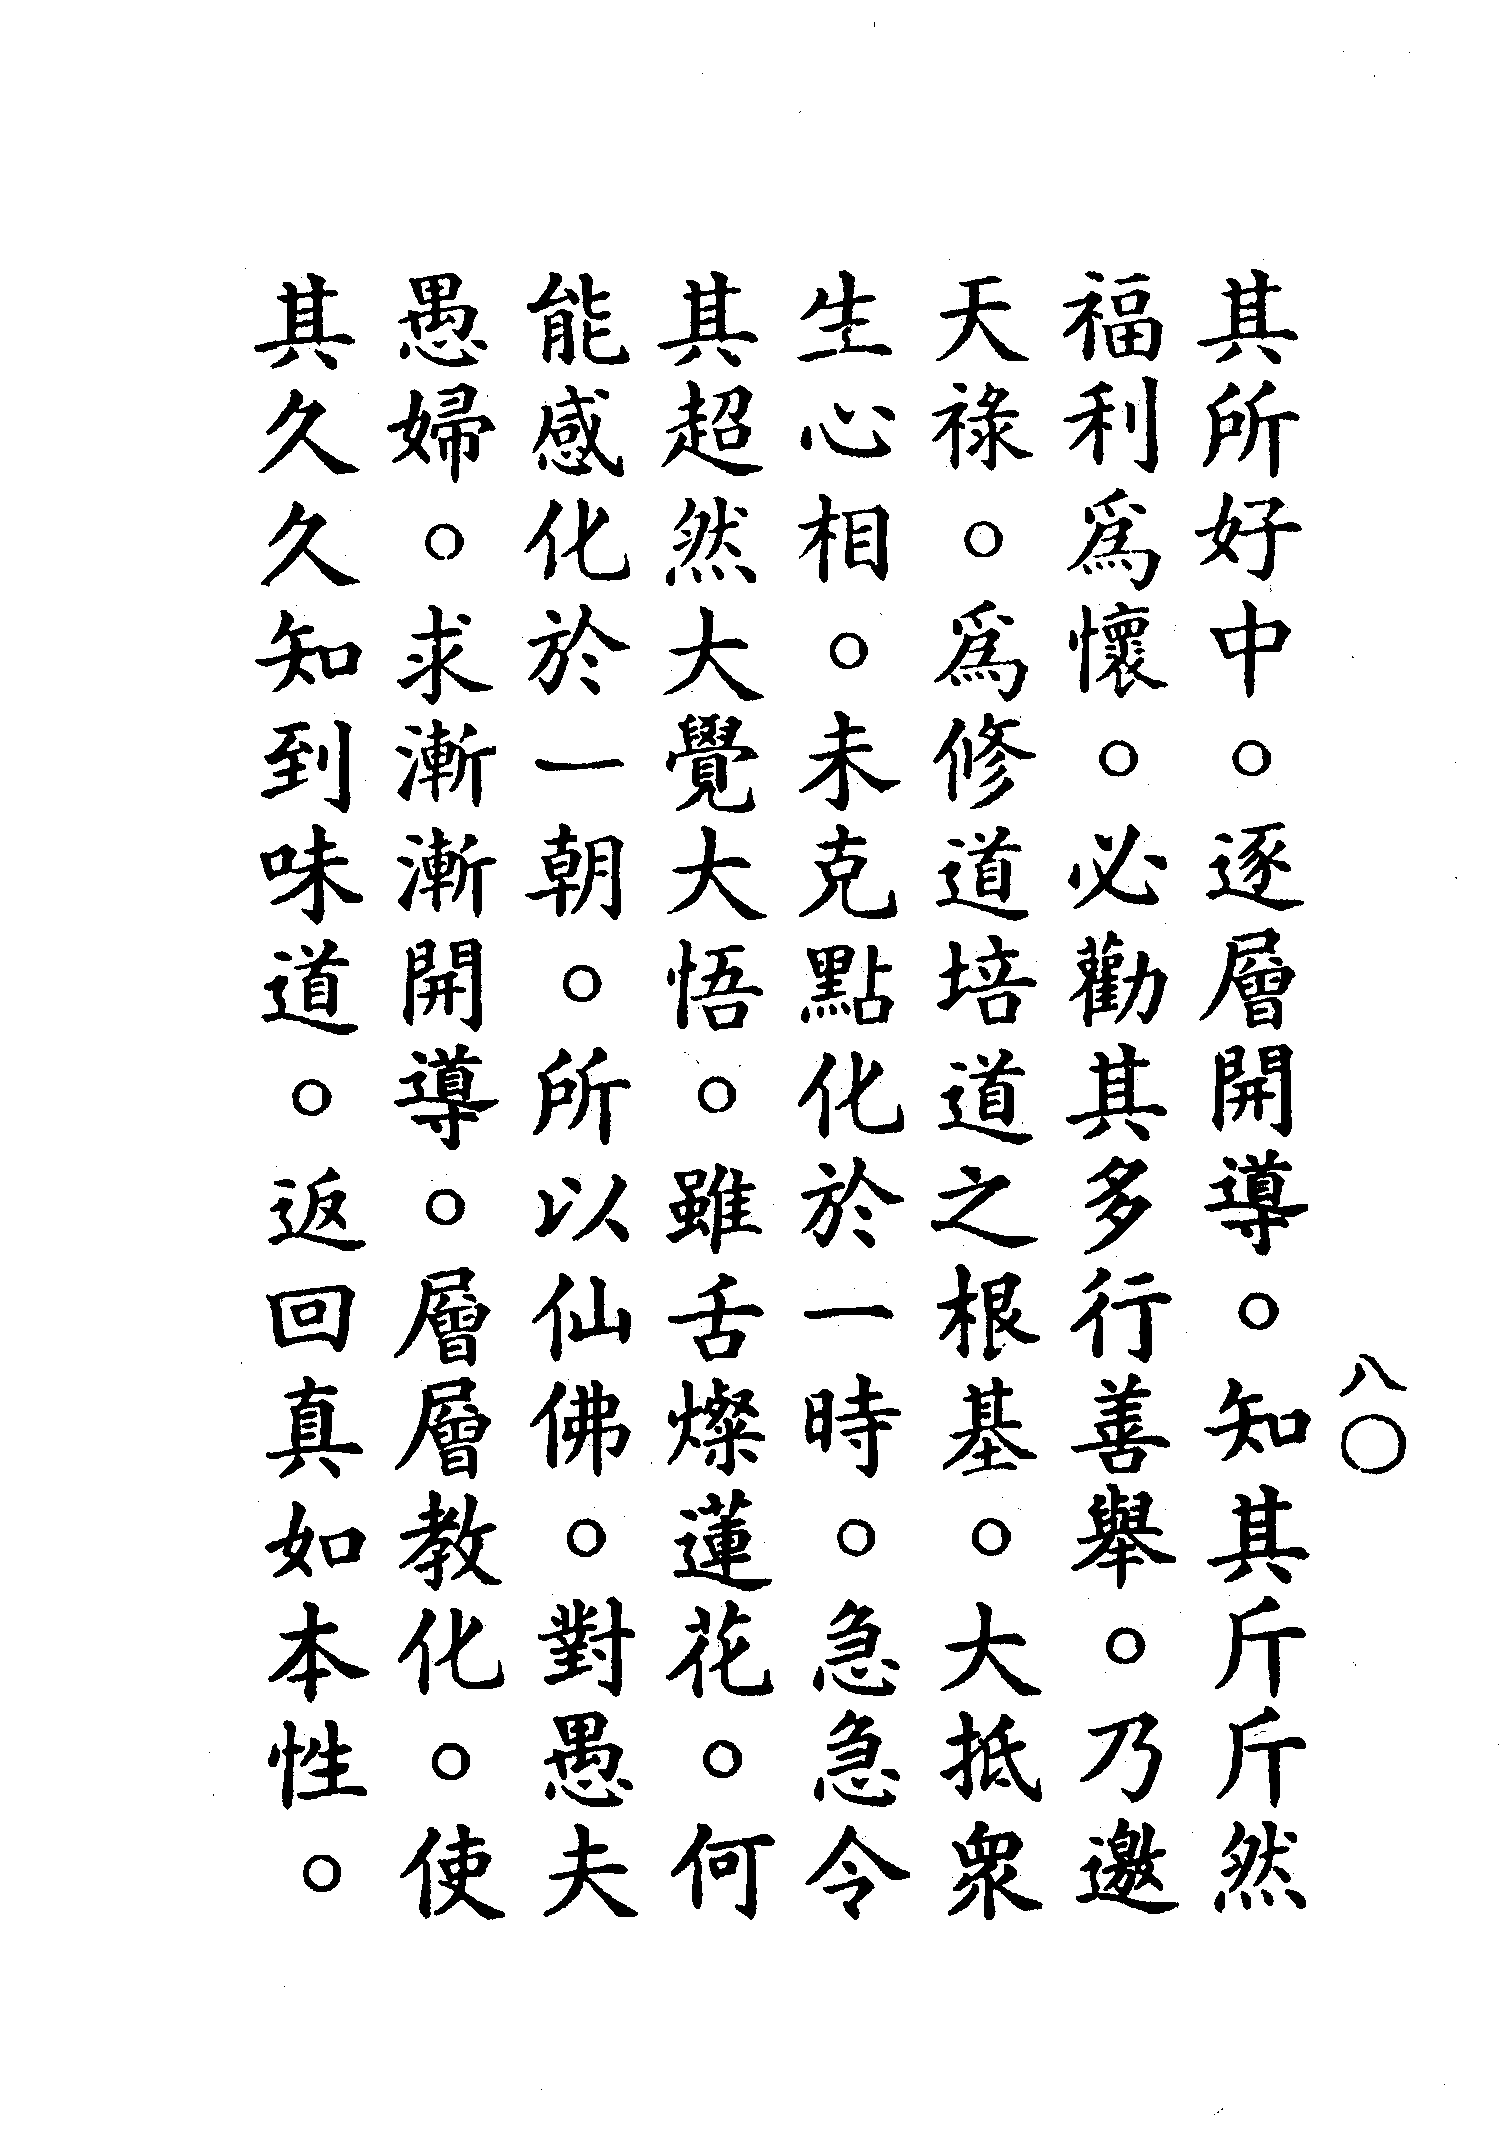 八〇
其所好中。逐層開導。知其斤斤然
福利爲懷。必勸其多行善舉。乃邀
天祿。爲修道培道之根基。大抵衆
生心相。未克點化於一時。急急令
其超然大覺大悟。雖舌燦蓮花。何
能感化於一朝。所以仙佛。對愚夫
愚婦。求漸漸開導。層層教化。使
其久久知到味道。返回真如本性。